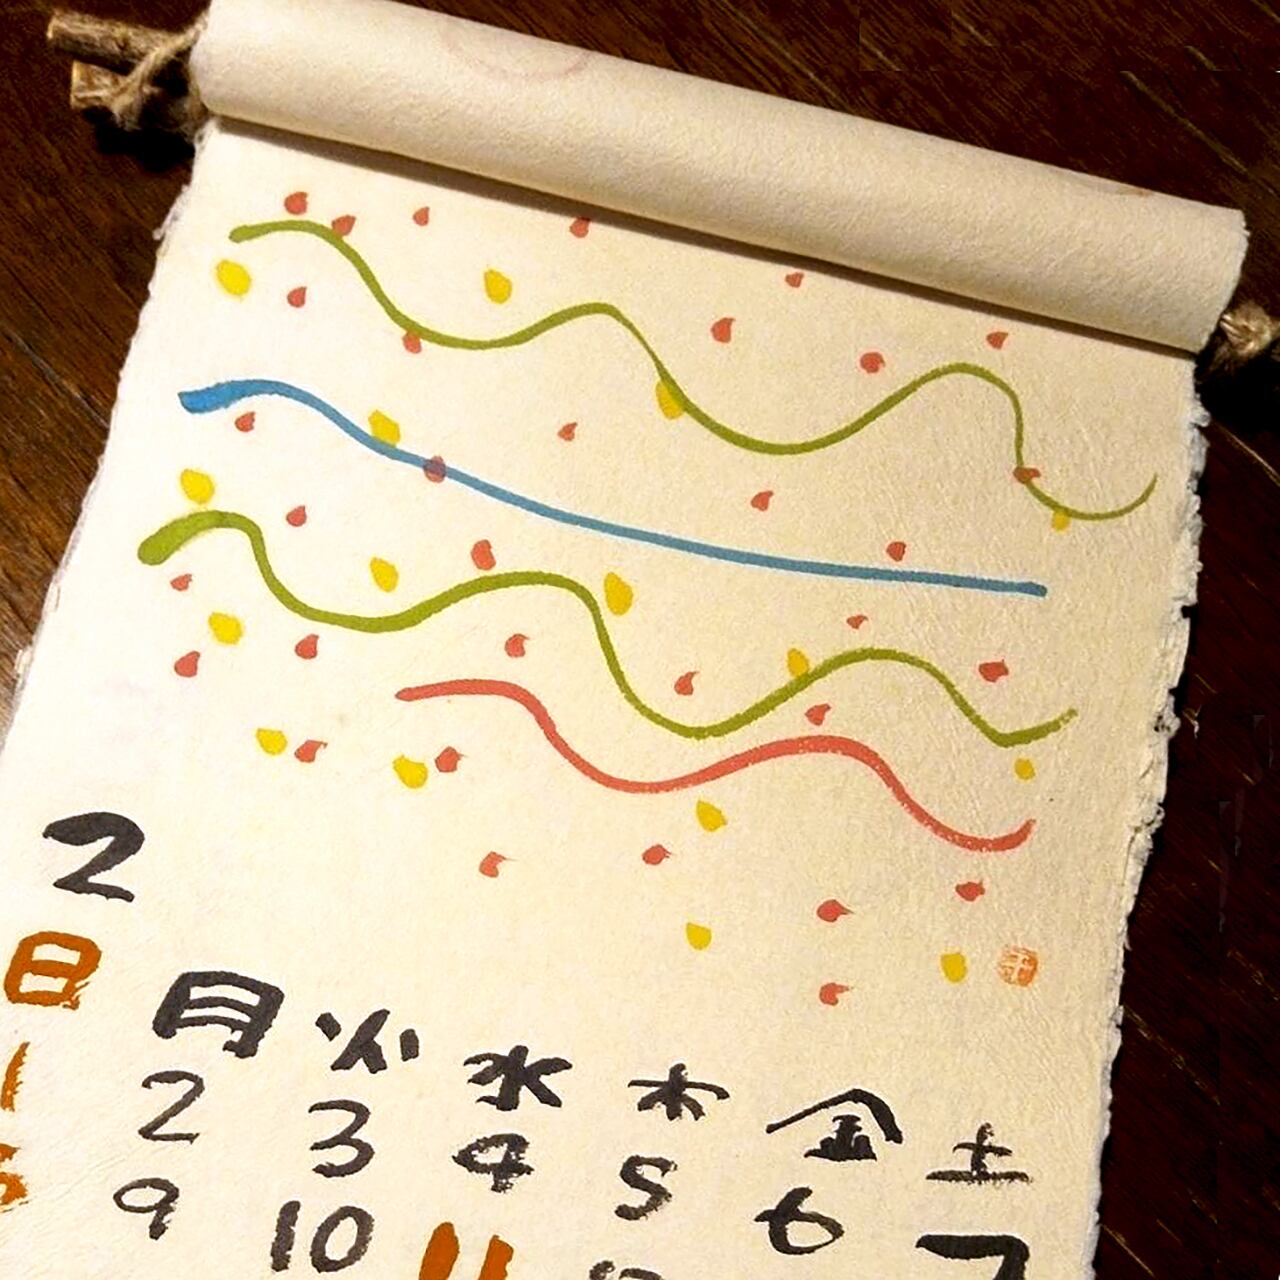 2
日 月 火 水 木 金 土
1 2 3 4 5 6 7
9 10 11